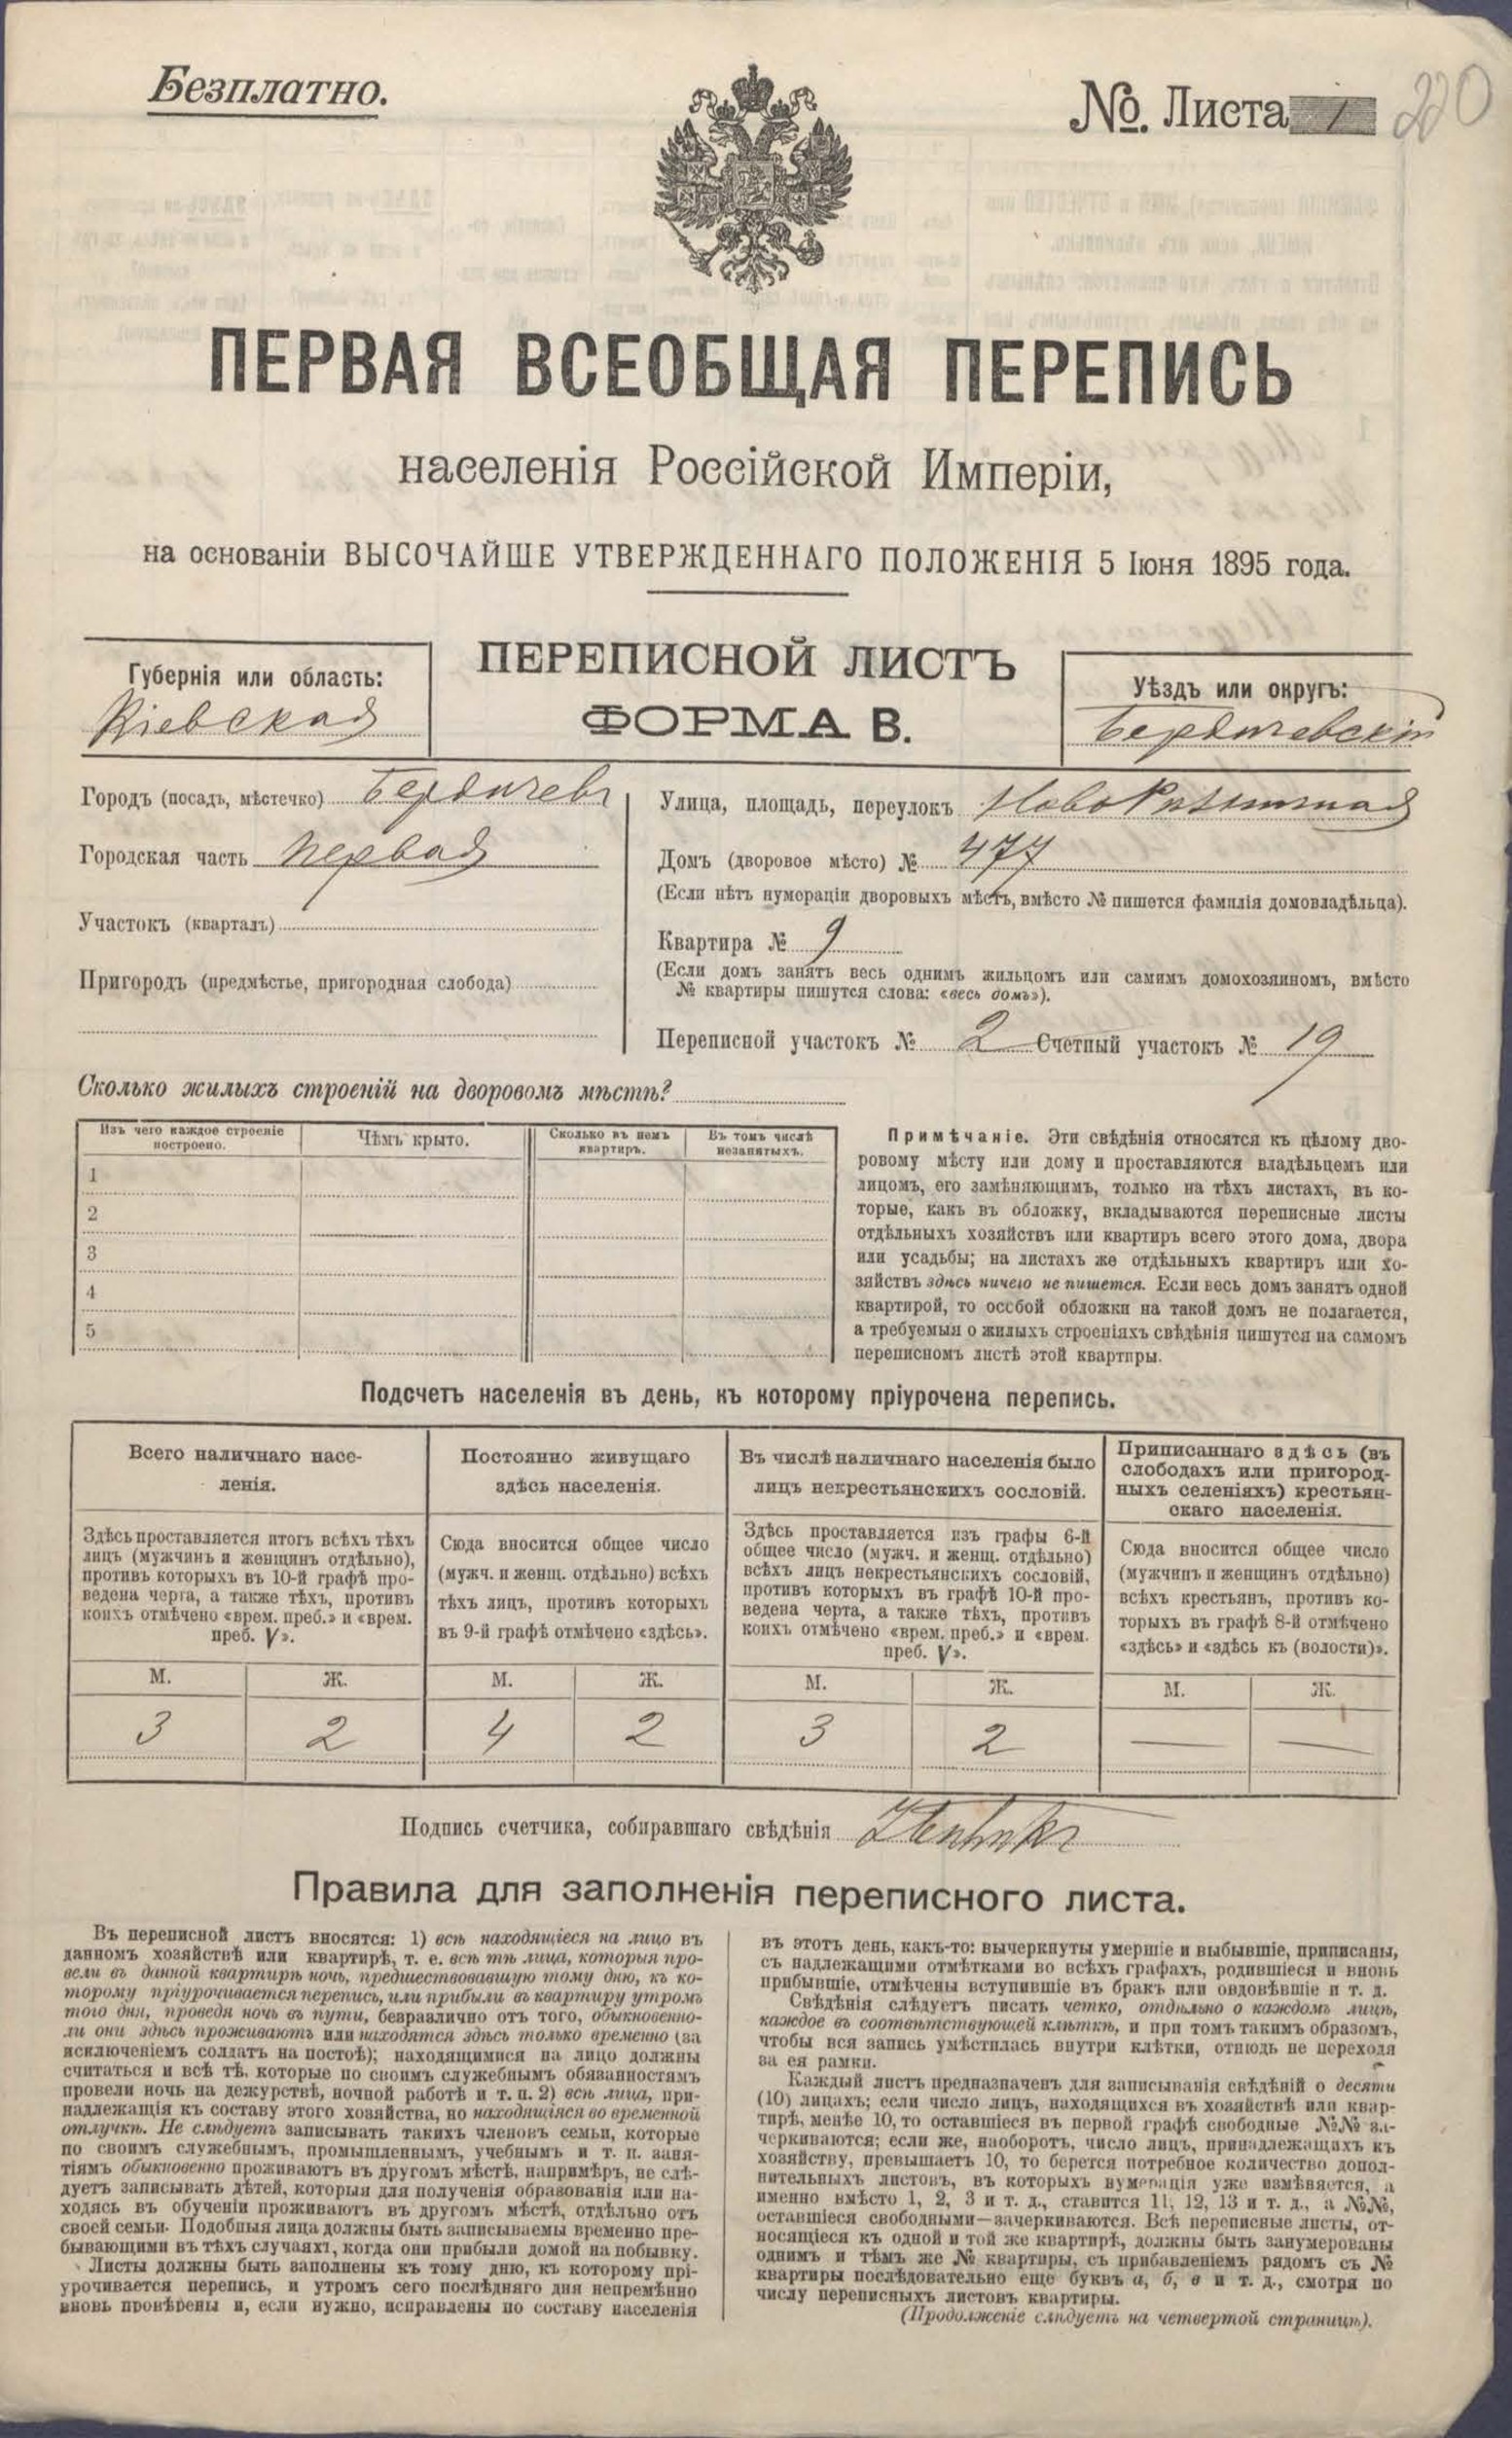 Безплатно.
№. Листа 1
220
ПЕРВАЯ ВСЕОБЩАЯ ПЕРЕПИСЬ
населенія Россійской Имперіи,
на основаніи ВЫСОЧАЙШЕ УТВЕРЖДЕННАГО ПОЛОЖЕНІЯ 5 Іюня 1895 года.
ПЕРЕПИСНОЙ ЛИСТЪ
ФОРМА В.
Губернія или область:
Кіевская
Уѣздъ или округъ:
Бердичевскій
Городъ (посадъ, мѣстечко) Бердичевъ
Городская часть первая
Участокъ (кварталъ)
Пригородъ (предмѣстье, пригородная слобода)
Улица, площадь, переулокъ
Домъ (дворовое мѣсто) № 477
(Если нѣтъ нумераціи дворовыхъ мѣстъ, вмѣсто № пишется фамилія домовладѣльца).
Квартира № 9
(Если домъ занятъ весь однимъ жильцомъ или самимъ домохозяиномъ, вмѣсто
№ квартиры пишутся слова: «весь домъ»).
Переписной участокъ № 2 Счетный участокъ № 19
Сколько жилыхъ строеній на дворовомъ мѣстѣ?
Изъ чего каждое строеніе
построено.
Чѣмъ крыто.
Сколько въ немъ
квартиръ.
Въ томъ числѣ
незанятыхъ.
1
2
3
4
5
Примѣчаніе. Эти свѣдѣнія относятся къ цѣлому дво-
ровому мѣсту или дому и проставляются владѣльцемъ или
лицомъ, его замѣняющимъ, только на тѣхъ листахъ, въ ко-
торые, какъ въ обложку, вкладываются переписные листы
отдѣльныхъ хозяйствъ или квартиръ всего этого дома, двора
или усадьбы; на листахъ же отдѣльныхъ квартиръ или хо-
зяйствъ здѣсь ничего не пишется. Если весь домъ занятъ одной
квартирой, то особой обложки на такой домъ не полагается,
а требуемыя о жилыхъ строеніяхъ свѣдѣнія пишутся на самомъ
переписномъ листѣ этой квартиры.
Подсчетъ населенія въ день, къ которому пріурочена перепись.
Всего наличнаго насе-
ленія.
Постоянно живущаго
здѣсь населенія.
Въ числѣ наличнаго населенія было
лицъ некрестьянскихъ сословій.
Приписаннаго здѣсь (въ
слободахъ или пригород-
ныхъ селеніяхъ) крестьян-
скаго населенія.
Здѣсь проставляется итогъ всѣхъ тѣхъ
лицъ (мужчинъ и женщинъ отдѣльно),
противъ которыхъ въ 10-й графѣ про-
ведена черта, а также тѣхъ, противъ
коихъ отмѣчено «врем. преб.» и «врем.
преб. V».
Сюда вносится общее число
(мужч. и женщ. отдѣльно) всѣхъ
тѣхъ лицъ, противъ которыхъ
въ 9-й графѣ отмѣчено «здѣсь».
Здѣсь проставляется изъ графы 6-й
общее число (мужч. и женщ. отдѣльно)
всѣхъ лицъ некрестьянскихъ сословій,
противъ которыхъ въ графѣ 10-й про-
ведена черта, а также тѣхъ, противъ
коихъ отмѣчено «врем. преб.» и «врем.
преб. V».
Сюда вносится общее число
(мужчинъ и женщинъ отдѣльно)
всѣхъ крестьянъ, противъ ко-
торыхъ въ графѣ 8-й отмѣчено
«здѣсь» и «здѣсь къ (волости)».
М. Ж. М. Ж. М. Ж. М. Ж.
3 2 4 2 3 2 — —
Подпись счетчика, собиравшаго свѣдѣнія
Правила для заполненія переписного листа.
Въ переписной листъ вносятся: 1) всѣ находящіеся на лицо въ
данномъ хозяйствѣ или квартирѣ, т. е. всѣ тѣ лица, которыя про-
вели въ данной квартирѣ ночь, предшествовавшую тому дню, къ ко-
торому пріурочивается перепись, или прибыли въ квартиру утромъ
того дня, проведя ночь въ пути, безразлично отъ того, обыкновенно-
ли они здѣсь проживаютъ или находятся здѣсь только временно (за
исключеніемъ солдатъ на постоѣ); находящимися на лицо должны
считаться и всѣ тѣ, которые по своимъ служебнымъ обязанностямъ
провели ночь на дежурствѣ, ночной работѣ и т. п. 2) всѣ лица, при-
надлежащія къ составу этого хозяйства, но находящіяся во временной
отлучкѣ. Не слѣдуетъ записывать такихъ членовъ семьи, которые
по своимъ служебнымъ, промышленнымъ, учебнымъ и т. п. заня-
тіямъ обыкновенно проживаютъ въ другомъ мѣстѣ, напримѣръ, не слѣ-
дуетъ записывать дѣтей, которыя для полученія образованія или на-
ходясь въ обученіи проживаютъ въ другомъ мѣстѣ, отдѣльно отъ
своей семьи. Подобныя лица должны быть записываемы временно пре-
бывающими въ тѣхъ случаяхъ, когда они прибыли домой на побывку.
Листы должны быть заполнены къ тому дню, къ которому прі-
урочивается перепись, и утромъ сего послѣдняго дня непремѣнно
вновь провѣрены и, если нужно, исправлены по составу населенія
въ этотъ день, какъ-то: вычеркнуты умершіе и выбывшіе, приписаны,
съ надлежащими отмѣтками во всѣхъ графахъ, родившіеся и вновь
прибывшіе, отмѣчены вступившіе въ бракъ или овдовѣвшіе и т. д.
Свѣдѣнія слѣдуетъ писать четко, отдѣльно о каждомъ лицѣ,
каждое въ соотвѣтствующей клѣткѣ, и при томъ такимъ образомъ,
чтобы вся запись умѣстилась внутри клѣтки, отнюдь не переходя
за ея рамки.
Каждый листъ предназначенъ для записыванія свѣдѣній о десяти
(10) лицахъ; если число лицъ, находящихся въ хозяйствѣ или квар-
тирѣ, менѣе 10, то оставшіеся въ первой графѣ свободные №№ за-
черкиваются; если же, наоборотъ, число лицъ, принадлежащихъ къ
хозяйству, превышаетъ 10, то берется потребное количество допол-
нительныхъ листовъ, въ которыхъ нумерація уже измѣняется, а
именно вмѣсто 1, 2, 3 и т. д., ставится 11, 12, 13 и т. д., а №№,
оставшіеся свободными—зачеркиваются. Всѣ переписные листы, от-
носящіеся къ одной и той же квартирѣ, должны быть занумерованы
однимъ и тѣмъ же № квартиры, съ прибавленіемъ рядомъ съ №
квартиры послѣдовательно еще буквъ а, б, в и т. д., смотря по
числу переписныхъ листовъ квартиры.
(Продолженіе слѣдуетъ на четвертой страницѣ).